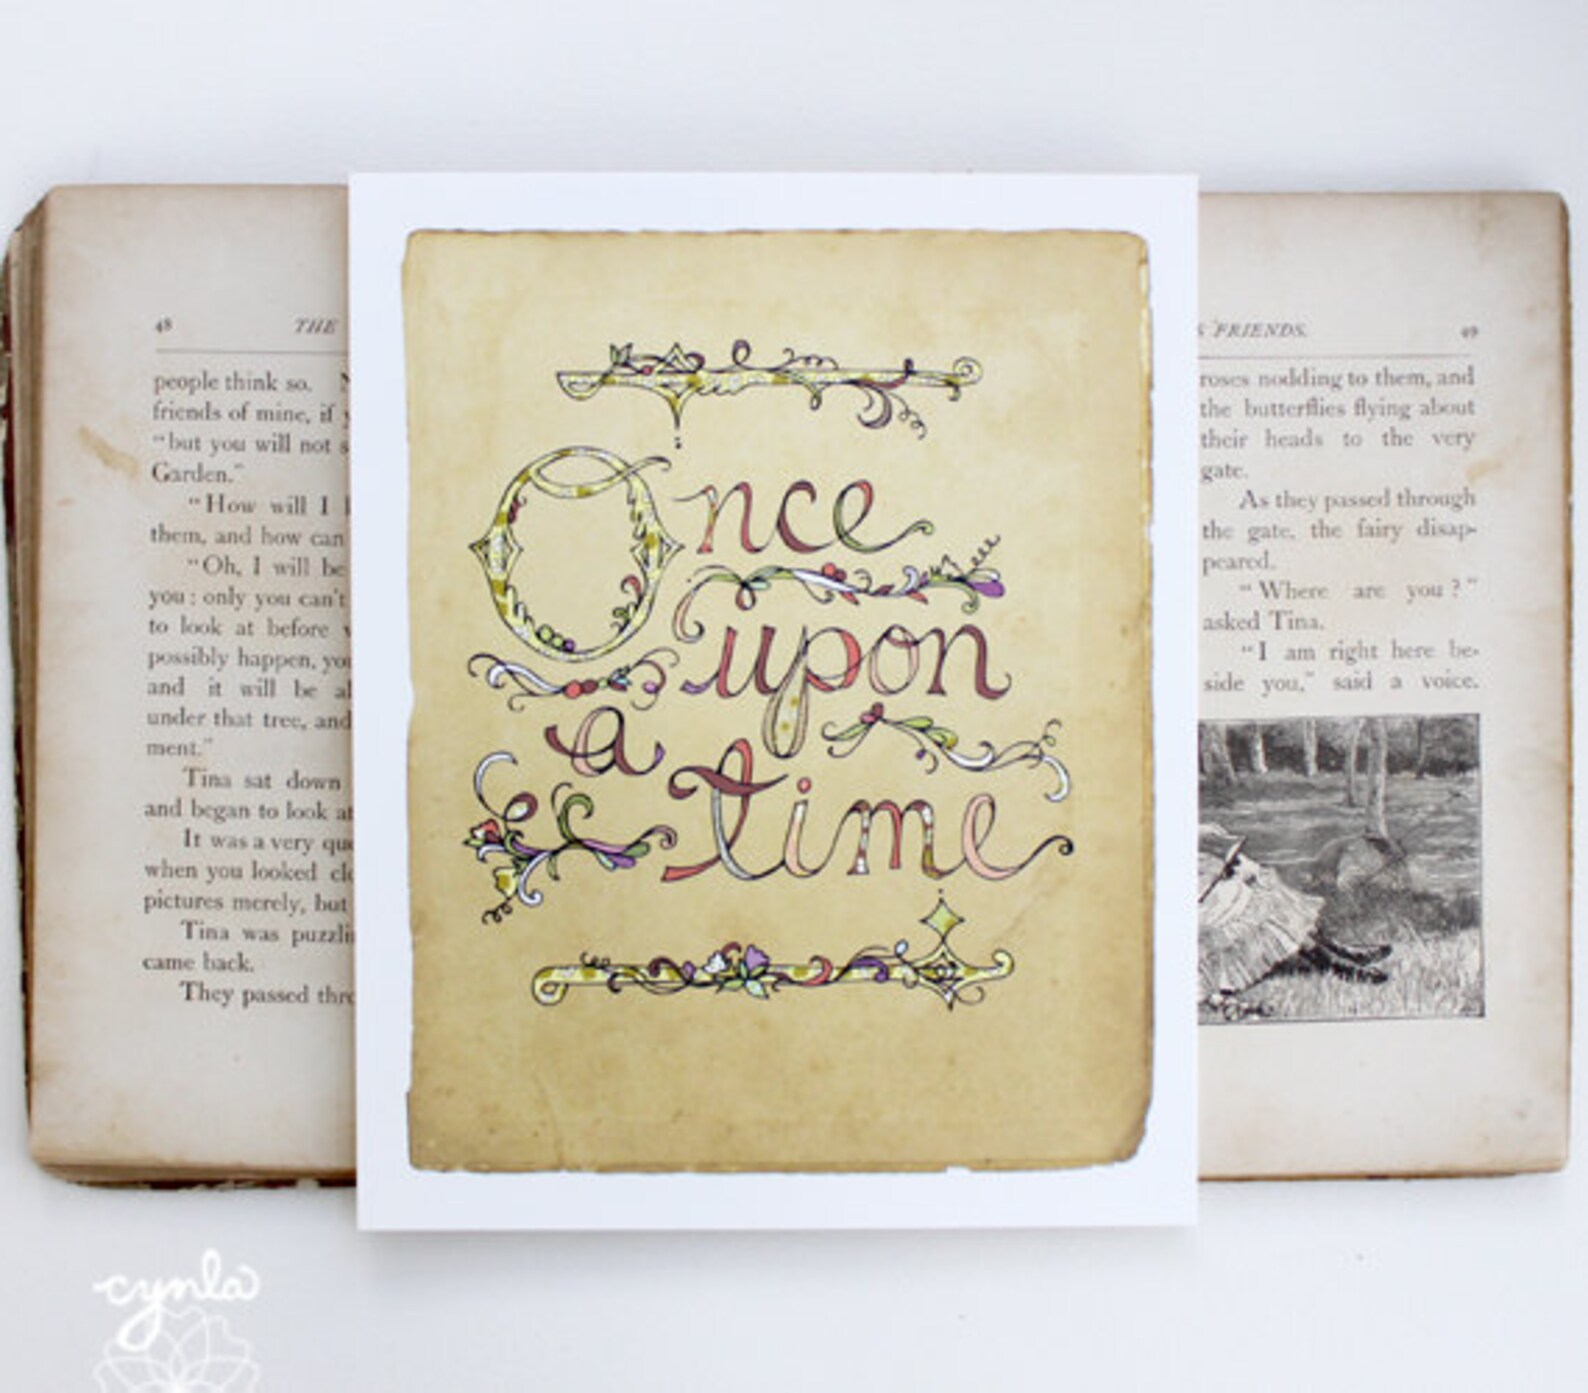 48 THE
people think so.
friends of mine, if
"but you will not
Garden."
"How will I
them, and how can
"Oh, I will be
you; only you can't
to look at before
possibly happen,
and it will be
under that tree, and
ment."
Tina sat down
and began to look at
It was a very
when you looked
pictures merely, but
Tina was
came back.
They passed
Once
upon
a
time
FRIENDS. 49
roses nodding to them, and
the butterflies flying about
their heads to the very
gate.
As they passed through
the gate, the fairy disap-
peared.
"Where are you?"
asked Tina.
"I am right here be-
side you," said a voice.
cynla